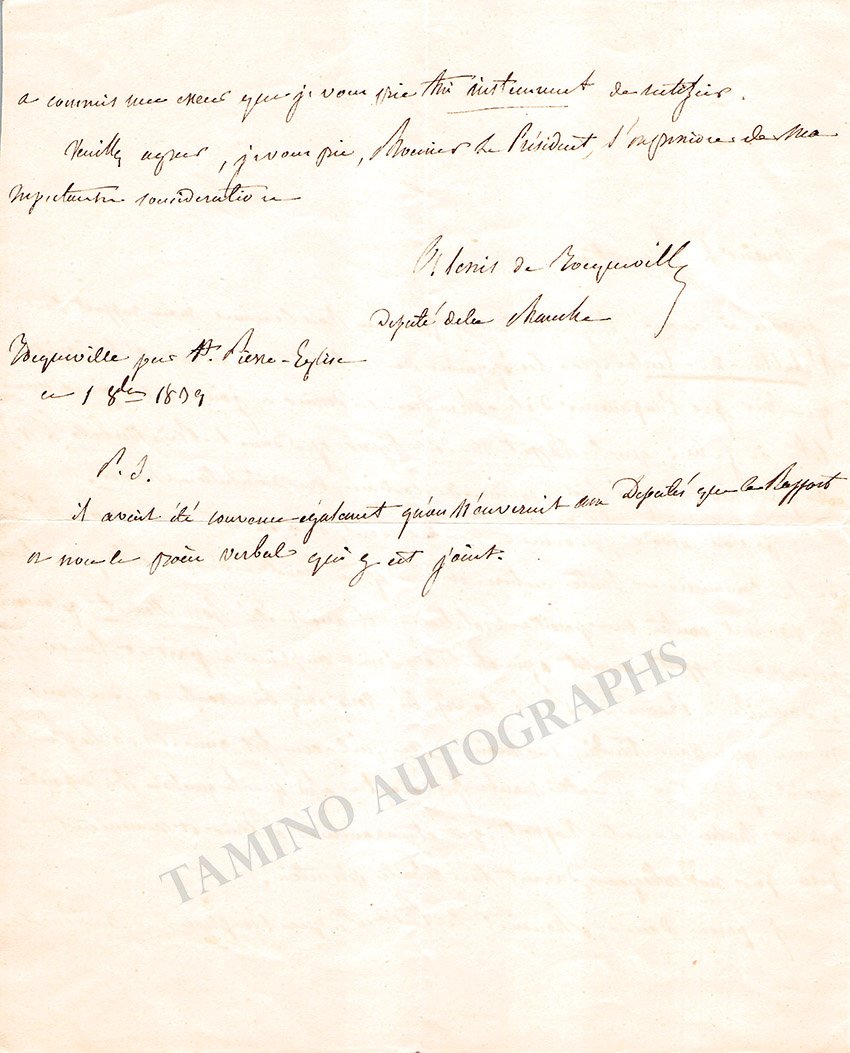 a commis une erreur que je vous prie très instamment de rectifier.
Veuillez agréer, je vous prie, Monsieur le Président, l'expression de ma
respectueuse considération
Alexis de Tocqueville
Député de la Manche
Tocqueville par St. Pierre-Eglise
ce 1 8bre 1839
P. S.
il avait été convenu également qu'on n'enverrait aux Députés que le Rapport
et non le procès verbal qui y est joint.
TAMINO AUTOGRAPHS